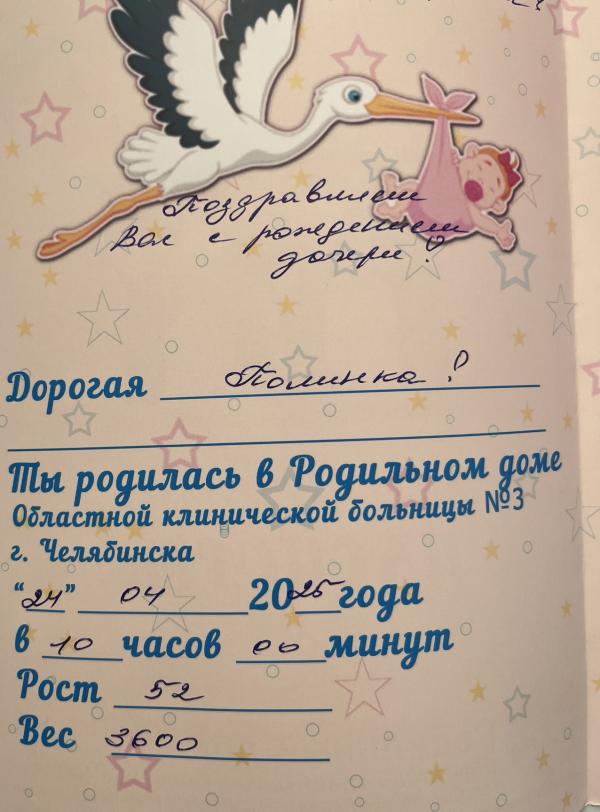 Поздравляем
Вас с рождением
дочери!
Дорогая Полинка!
Ты родилась в Родильном доме
Областной клинической больницы №3
г. Челябинска
"24" 04 2025 года
в 10 часов 00 минут
Рост 52
Вес 3600